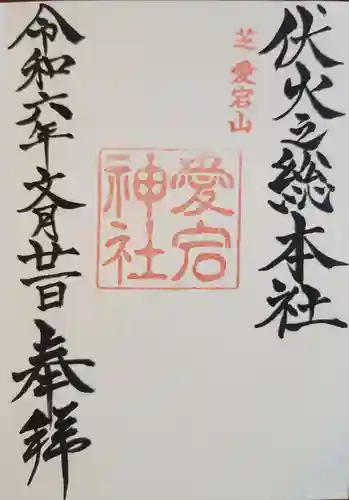 伏火之総本社
芝愛宕山
愛宕
神社
令和六年文月廿一日
奉拝